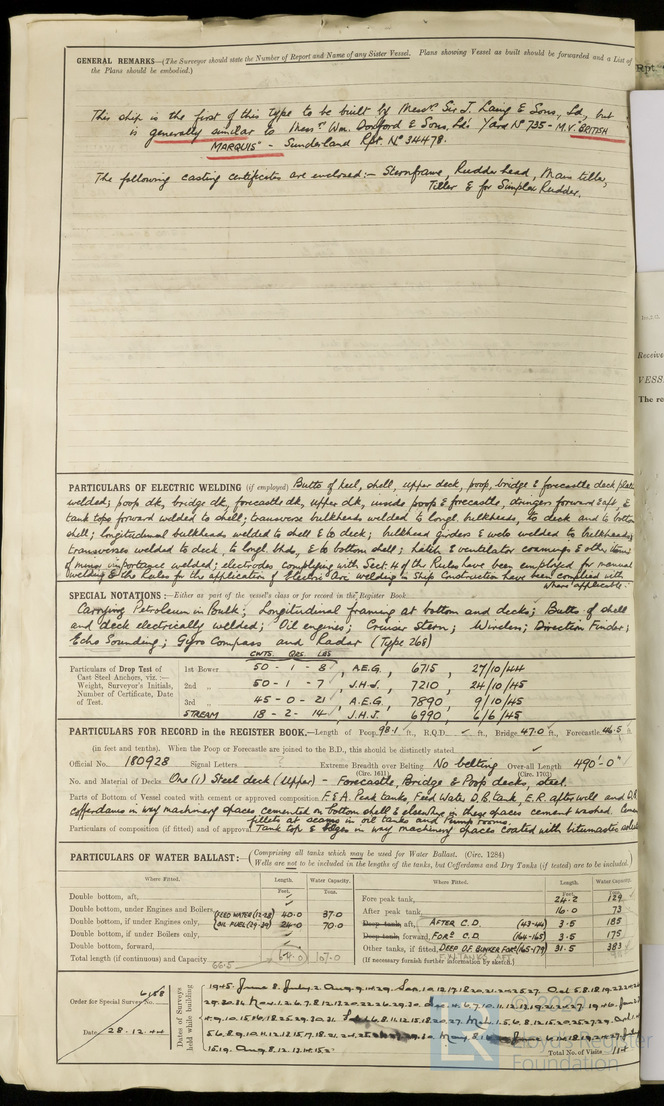 GENERAL REMARKS—(The Surveyor should state the Number of Report and Name of any Sister Vessel. Plans showing Vessel as built should be forwarded and a List of
the Plans should be embodied.)
This ship is the first of this type to be built by Messrs Sir J. Laing & Sons, Ld., but
is generally similar to Messrs Wm. Doxford & Sons, Ld's Yard No 735 - M.V. "BRITISH
MARQUIS" - Sunderland Rpt. No 34478.
The following casting certificates are enclosed:- Sternframe, Rudder head, Main tiller,
Tiller & for Simplex Rudder.
PARTICULARS OF ELECTRIC WELDING (if employed) Butts of keel, shell, upper deck, poop, bridge & forecastle deck plate
welded; poop dk, bridge dk, forecastle dk, upper dk, inside poop & forecastle, stringers forward & aft, &
tank tops forward welded to shell; transverse bulkheads welded to longl. bulkheads, to deck and to bottom
shell; longitudinal bulkheads welded to shell & to deck; bulkhead girders & webs welded to bulkheads;
transverses welded to deck, to longl. bhds, & to bottom shell; hatch & ventilator coamings & other items
of minor importance welded; electrodes complying with Sect. 4 of the Rules have been employed for manual
welding & the Rules for the application of Electric Arc welding in Ship Construction have been complied with
where applicable.
SPECIAL NOTATIONS:—Either as part of the vessel's class or for record in the Register Book
Carrying Petroleum in Bulk; Longitudinal framing at bottom and decks; Butts of shell
and deck electrically welded; Oil engines; Cruiser Stern; Wireless; Direction Finder;
Echo Sounding; Gyro Compass and Radar (Type 268)
CWTS. QRS. LBS
Particulars of Drop Test of Cast Steel Anchors, viz.:— Weight, Surveyor's Initials, Number of Certificate, Date of Test.
1st Bower 50 - 1 - 8, A.E.G., 6715, 27/10/44
2nd „ 50 - 1 - 7, J.H.J., 7210, 24/10/45
3rd „ 45 - 0 - 21, A.E.G., 7890, 9/10/45
STREAM 18 - 2 - 14, J.H.J., 6990, 6/6/45
PARTICULARS FOR RECORD in the REGISTER BOOK.—Length of Poop 98.1 ft., R.Q.D. ft., Bridge 47.0 ft., Forecastle 46.5 ft.
(in feet and tenths). When the Poop or Forecastle are joined to the B.D., this should be distinctly stated
Official No. 180928 Signal Letters ? Extreme Breadth over Belting No belting Over-all Length 490'-0"
(Circ. 1611) (Circ. 1703)
No. and Material of Decks One (1) Steel deck (Upper) - Forecastle, Bridge & Poop decks, steel.
Parts of Bottom of Vessel coated with cement or approved composition F. & A. Peak tanks, Feed Water D.B. tank, E.R. after well and D.B.
Cofferdams in way machinery spaces cemented on bottom shell & elsewhere in these spaces cement washed. Cement
fillets at seams in oil tanks and Pump rooms.
Particulars of composition (if fitted) and of approval Tank top & bilges in way machinery spaces coated with bitumastic
PARTICULARS OF WATER BALLAST:—(Comprising all tanks which may be used for Water Ballast. (Circ. 1284)
Wells are not to be included in the lengths of the tanks, but Cofferdams and Dry Tanks (if tested) are to be included.)
Where Fitted. Length. Water Capacity. Where Fitted. Length. Water Capacity.
Feet. Tons. Feet. Tons.
Double bottom, aft, Fore peak tank, 24.2 129
Double bottom, under Engines and Boilers, FEED WATER (12-28) 40.0 37.0 After peak tank, 16.0 73
Double bottom, if under Engines only, OIL FUEL (29-39) 24.0 70.0 Deep tank, aft, AFTER C.D. (43-44) 3.5 185
Double bottom, if under Boilers only, Deep tank, forward, FORD C.D. (164-165) 3.5 175
Double bottom, forward, Other tanks, if fitted, DEEP OF BUNKER FORD (165-179) 31.5 383
Total length (if continuous) and Capacity 66.5 64.0 107.0 (If necessary furnish further information by sketch.)
F.W. TANKS AFT.
Order for Special Survey No. 6158
Date 28.12.44
Dates of Surveys held while building
Total No. of Visits
© 2020
LR
Lloyd's Register
Foundation
Rpt.
Receive
VESS
The ro